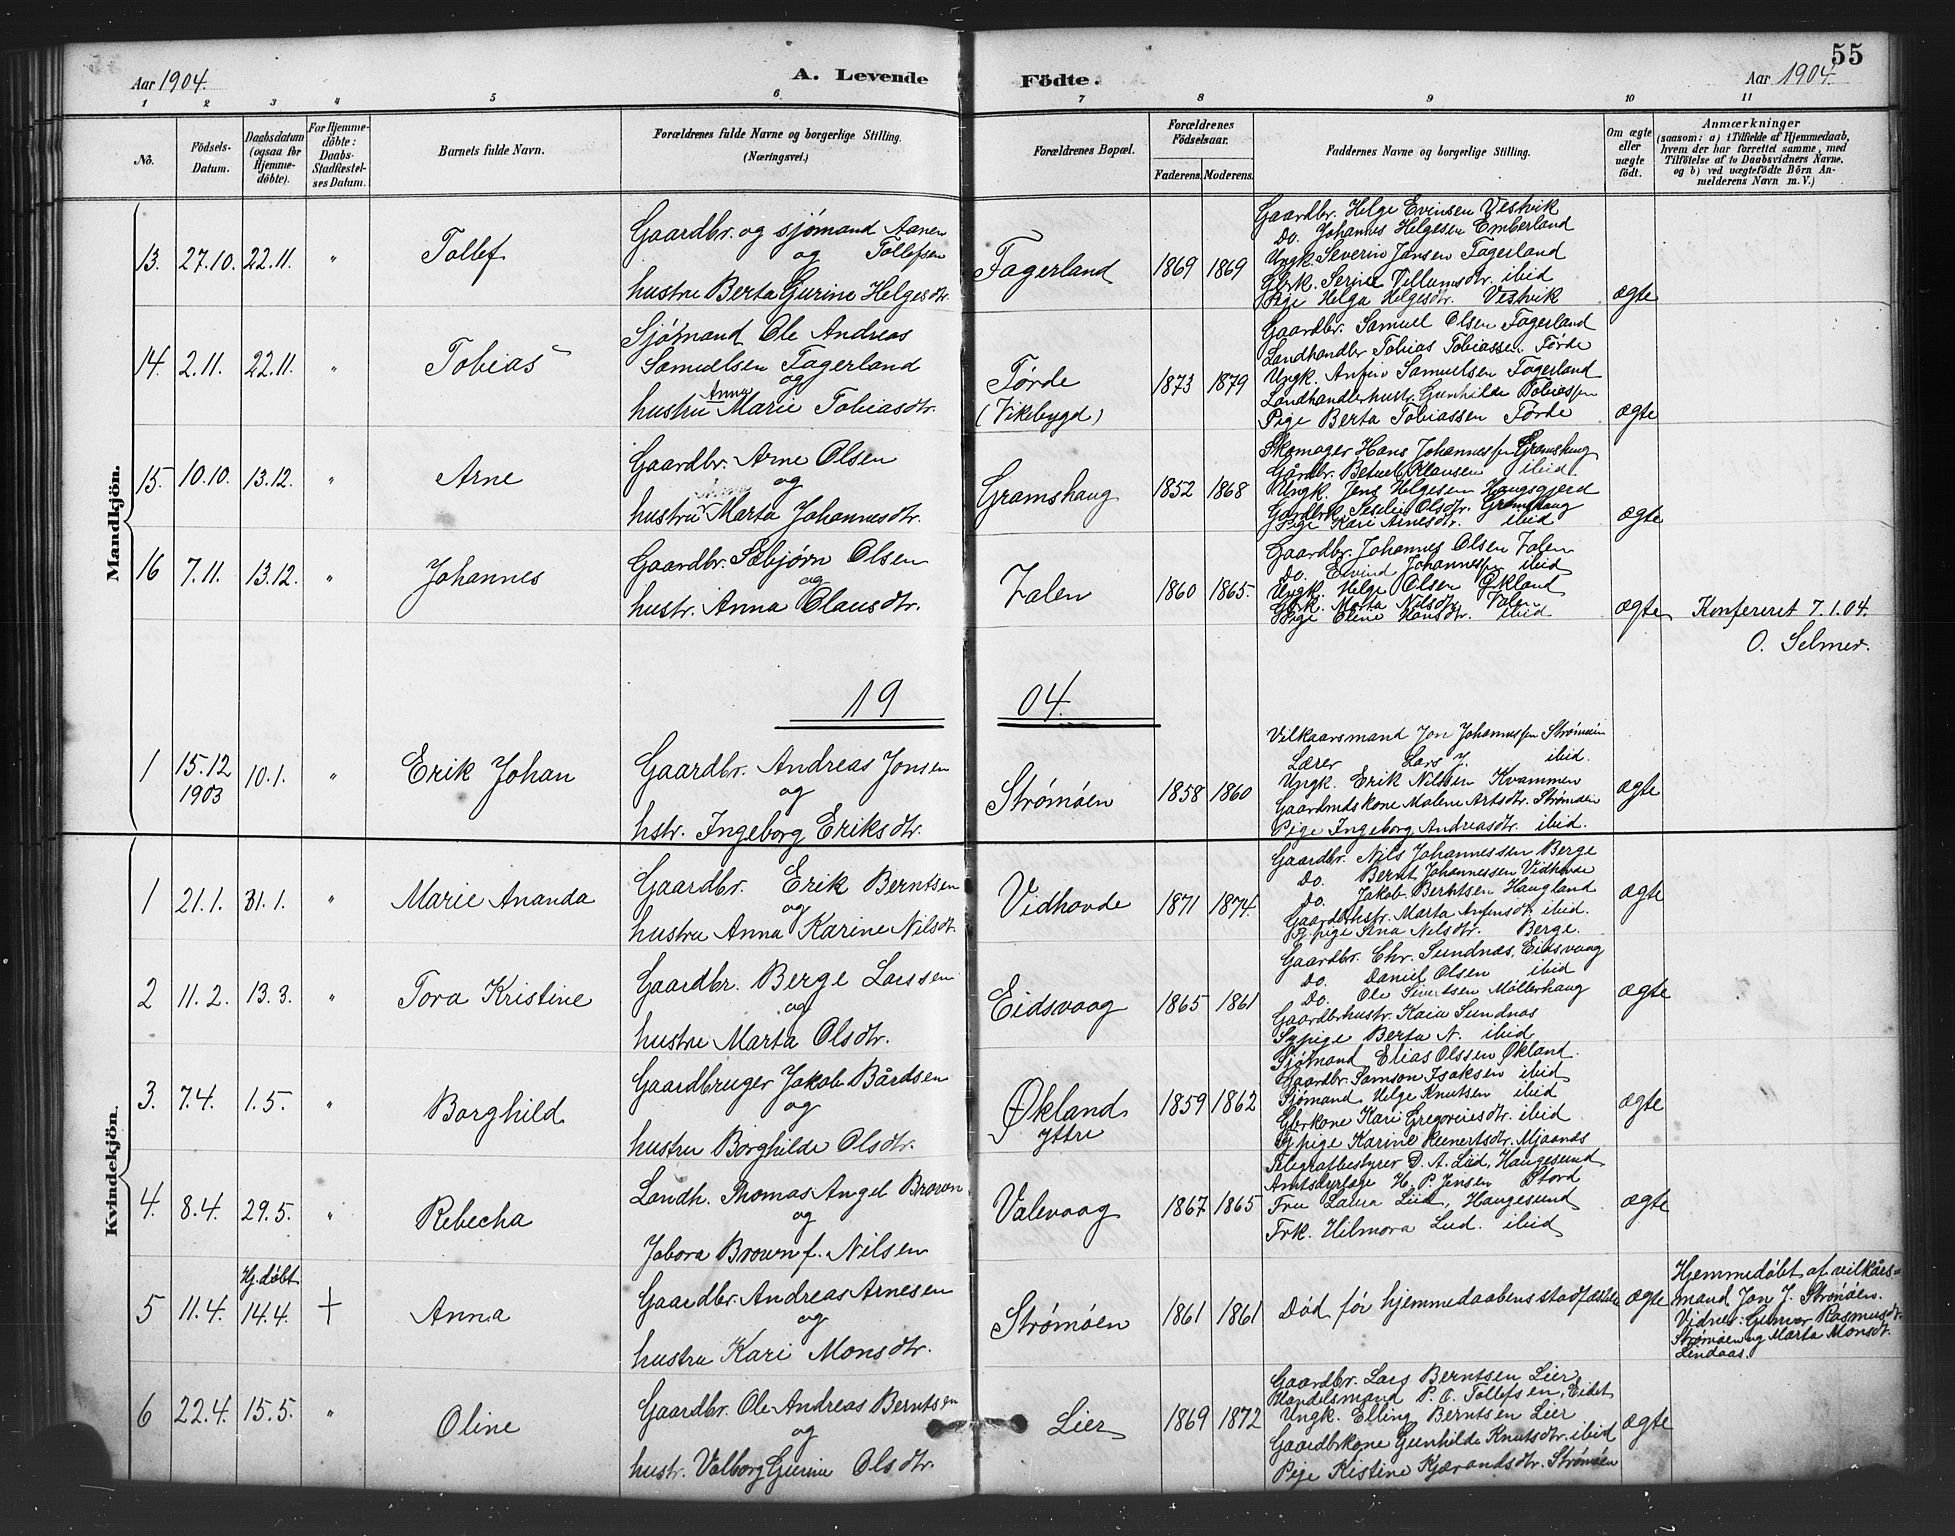 55
Aar 1904.
A. Levende
Födte.
Aar 1904.
1 2 3 4 5 6. 7 8 9 10 11
No.
Födsels-
Datum.
Daabsdatum
(ogsaa for
Hjemme-
döbte).
For Hjemme-
döbte:
Daabs-
Stadfæstel-
ses Datum.
Barnets fulde Navn.
Forældrenes fulde Navne og borgerlige Stilling.
(Næringsvei.)
Forældrenes Bopæl.
Forældrenes
Födselsaar.
Faderens.
Moderens.
Faddernes Navne og borgerlige Stilling.
Om ægte
eller
uægte
födt.
Anmærkninger
(saasom: a) i Tilfælde af Hjemmedaab,
hvem der har forrettet samme, med
Tilföielse af to Daabsvidners Navne,
og b) ved uægtefödte Börn An-
melderens Navn m. V.)
Mandkjön.
13. 27.10. 22.11. "
Tollef
Gaardbr. og sjømand Aanen
og Tollefsen
hustru Berta Gurine Helgesdtr.
Fagerland
1869 1869
Gaardbr. Helge Evinsen Vestvik
Do. Johannes Helgesen Emberland
Ungk. Severin Jansen Fagerland
Gbrk. Serine Villumsdtr. ibid
Pige Helga Helgesdtr. Vestvik
ægte
14. 2.11. 22.11. "
Tobias
Sjømand Ole Andreas
Samuelsen Fagerland
og
hustru Anna Marie Tobiasdtr.
Førde
(Vikebygd)
1873 1879
Gaardbr. Samuel Olsen Fagerland
Landhandler Tobias Tobiassen Førde
Ungk. Anfin Samuelsen Fagerland
Landhandlerhustr. Gunhilde Tobiassen
Pige Berta Tobiassen Førde
ægte
15. 10.10. 13.12. "
Arne
Gaardbr. Arne Olsen
og
hustru Marta Johannesdtr.
Gramshaug
1852 1868
Skomager Hans Johannessen Gramshaug
Gårdbr. Betuel Klausen ibid.
Ungk. Jens Helgesen Haugsgjerd
Gardbrk. Olsdtr. Gramshaug
Pige Kari Arnesdtr. ibid
ægte
16 7.11. 13.12. "
Johannes
Gaardbr. Sebjørn Olsen
og
hustr. Anna Clausdtr.
Valen
1860 1865.
Gaardbr. Johannes Olsen Valen
Do. Eivind Johannessen ibid
Ungk. Helge Olsen Økland
Gbrk. Marta Nilsdtr. Valen
Pige Oline Hansdtr. ibid
ægte
Konfereret 7.1.04.
O. Selmer.
19 04.
1 15.12 1903 10.1. "
Erik Johan
Gaardbr. Andreas Jonsen
og
hstr. Ingeborg Eriksdtr.
Strømøen
1858 1860
Vilkaarsmand Jon Johannessen Strømøen
Lærer Lars J. ibid.
Ungk. Erik Nilssen Kvammen
Gaardmdskone Malene Arisdtr. Strømøen
Pige Ingeborg Andreasdtr. ibid.
ægte
Kvindekjön.
1 21.1. 31.1. "
Marie Ananda
Gaardbr. Erik Berntsen
og
hustru Anna Karine Nilsdt.
Vidhovde
1871 1874.
Gaardbr. Nils Johannessen Berge
Do. Bernt Johannessen Vidhovde
Do. Jakob Berntsen Haugland
Gaardbrhstr. Marta Anfinsdtr. ibid.
pige Sina Nilsdtr. Berge.
ægte
2 11.2. 13.3. "
Tora Kristine
Gaardbr. Berge Larssen
og
hustru Marta Olsdtr.
Eidsvaag
1865 1861
Gaardbr. Chr. Sundnæs, Eidsvaag
Do. Daniel Olsen ibid
Do. Ole Sivertsen Møllerhaug
Gaardbrhustr. Kaia Sundnæs
pige Berta N. ibid.
ægte
3. 7.4. 1.5. "
Borghild
Gaardbruger Jakob Bårdsen
og
hustru Borghilde Olsdtr.
Økland
Ytre
1859 1862
Sjømand Elias Olssen Økland.
Gaardbr. Samson Isaksen ibid
Sjømand Helge Knutsen ibid
Gbrkone Kari Gregoriusdtr. ibid
pige Karine Reinertsdtr. Mjaanæs
ægte
4. 8.4. 29.5. "
Rebecha
Landh. Thomas Angel Brown
og
Jobora Brown f. Nilsen
Valevaag
1867 1865
Telegrafbestyrer D. A. Lud, Haugesund
Amtsdyrlæge H. P. Jensen Stord
Fru Laura Lud, Haugesund
Frk. Hilmora Lud. ibid
ægte
5 11.4. Hj.døbt 14.4. +
Anna
Gaardbr. Andreas Arnesen
og
hustru Kari Monsdtr.
Strømøen
1861 1861
Død før hjemmedaabens stadfæstelse
ægte
Hjemmedøbt af vilkårs-
mand Jon J. Strømøen.
Vidner: Gunvor Rasmusdtr.
Strømøen og Marta Monsdt.
Lindaas.
6 22.4. 15.5. "
Oline
Gaardbr. Ole Andreas Berntsen
og
hustr. Valborg Gurine Olsdtr.
Lier
1869 1872
Gaardbr. Lars Berntsen Lier
Handelsmand P. O. Tollefsen, Eidet
Ungk. Elling Berntsen Lier
Gaardbrkone Gunhilde Knutsdtr. ibid
Pige Kistine Kjærandsdtr. Strømøen
ægte